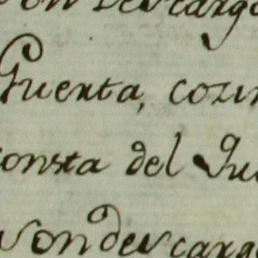 on descargo
Cuenta, cozin
consta del Qu
son descargo